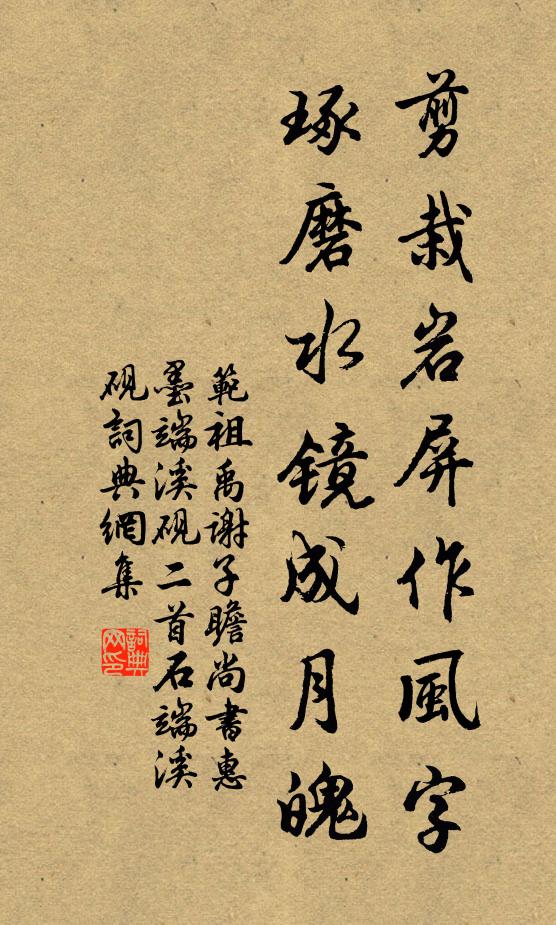 剪栽岩屏作風字
琢磨水镜成月魄
範祖禹谢子瞻尚書惠
墨端溪硯二首石端溪
硯詞典網集
詞典
网印